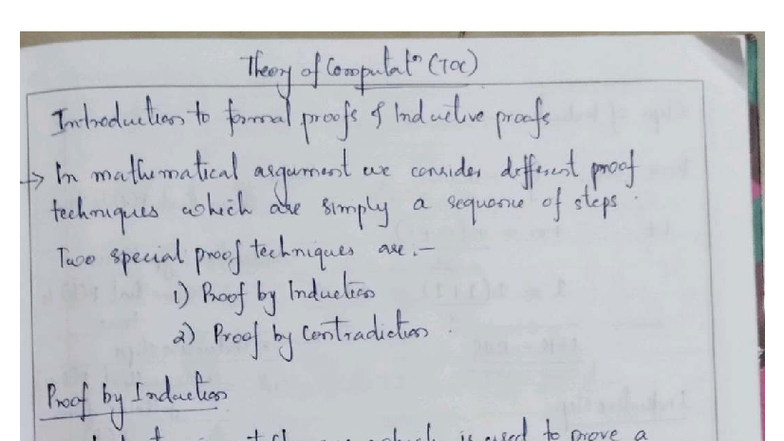 Theory of Computatn (TOC)
Introduction to formal proofs & Inductive proofs
→ In mathematical argument we consider different proof
techniques which are simply a sequence of steps.
Two special proof techniques are.-
1) Proof by Induction
2) Proof by Contradiction.
Proof by Induction
which is used to prove a